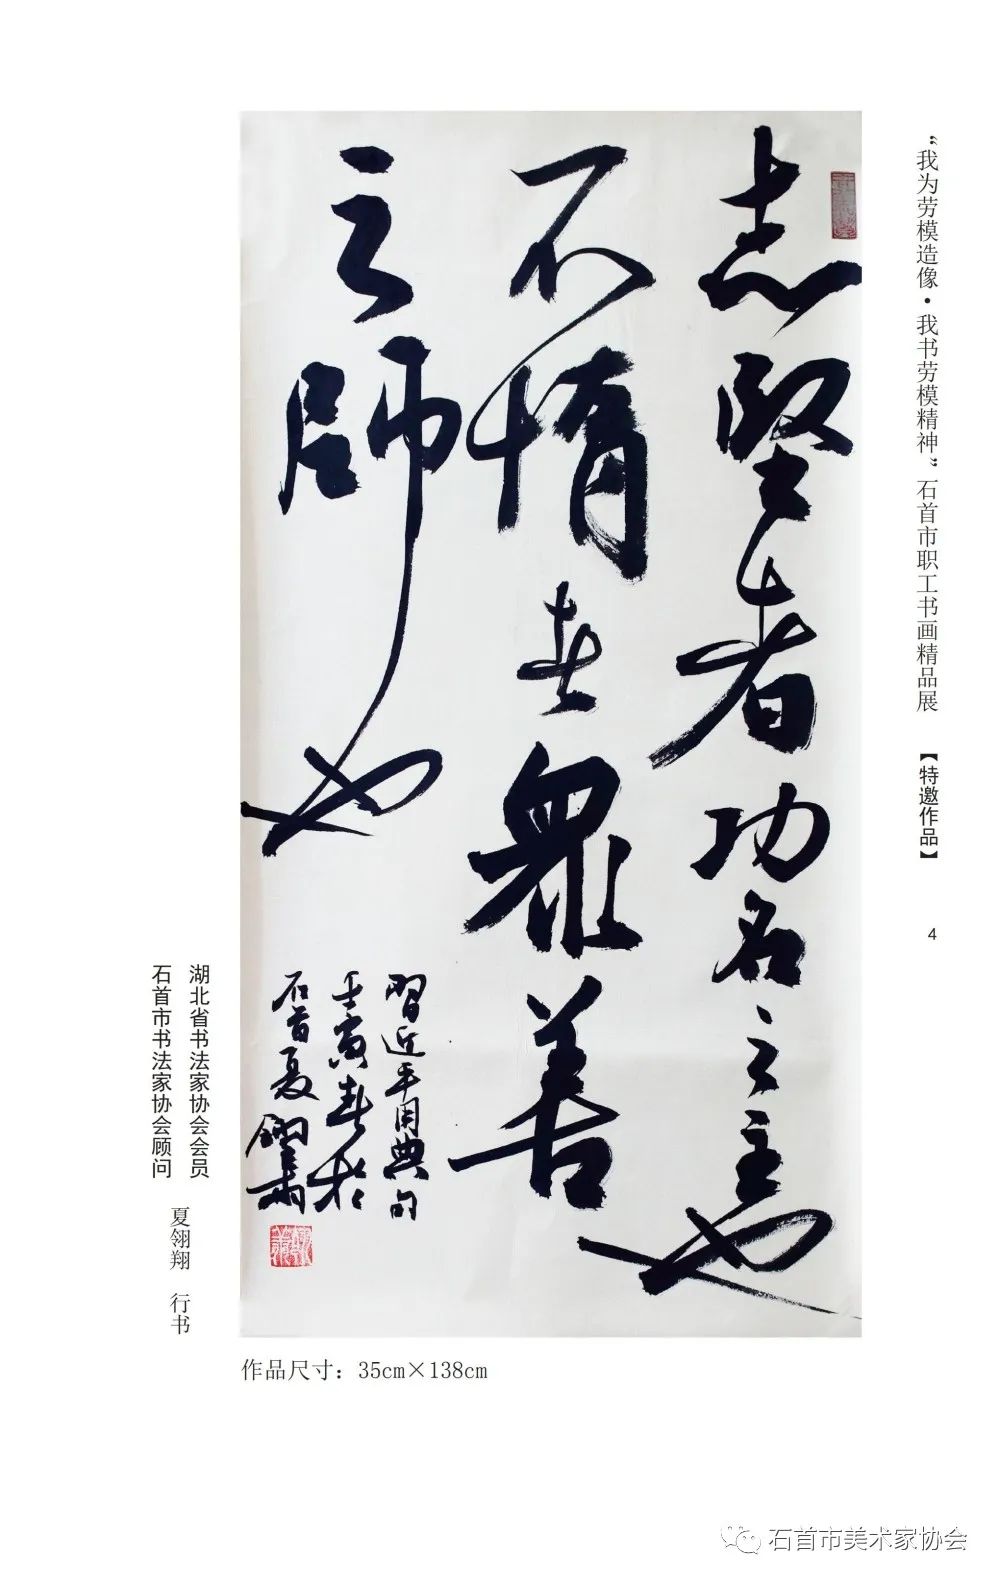 “我为劳模造像·我书劳模精神”石首市职工书画精品展 【特邀作品】
4
志堅者功名之主也
不惰者衆善
之師也
習近平用典句
壬寅春於
石首夏翎翔書
湖北省书法家协会会员
石首市书法家协会顾问
夏翎翔 行书
作品尺寸：35cm×138cm
石首市美术家协会